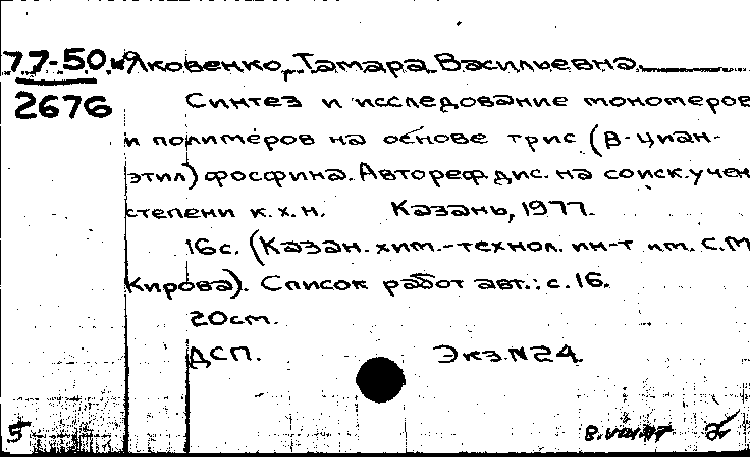 77-50
2676
Яковенко, Тамара Васильевна.
Синтез и исследование мономеров
и полимеров на основе трис (В-циан-
этил) фосфина. Автореф. дис. на соиск. учен
степени к.х.н. Казань, 1977.
16с. (Казан. хим.-технол. ин-т им. С.М
Кирова). Список работ авт.: с. 16.
20см.
ДСП. Экз. N24.
5